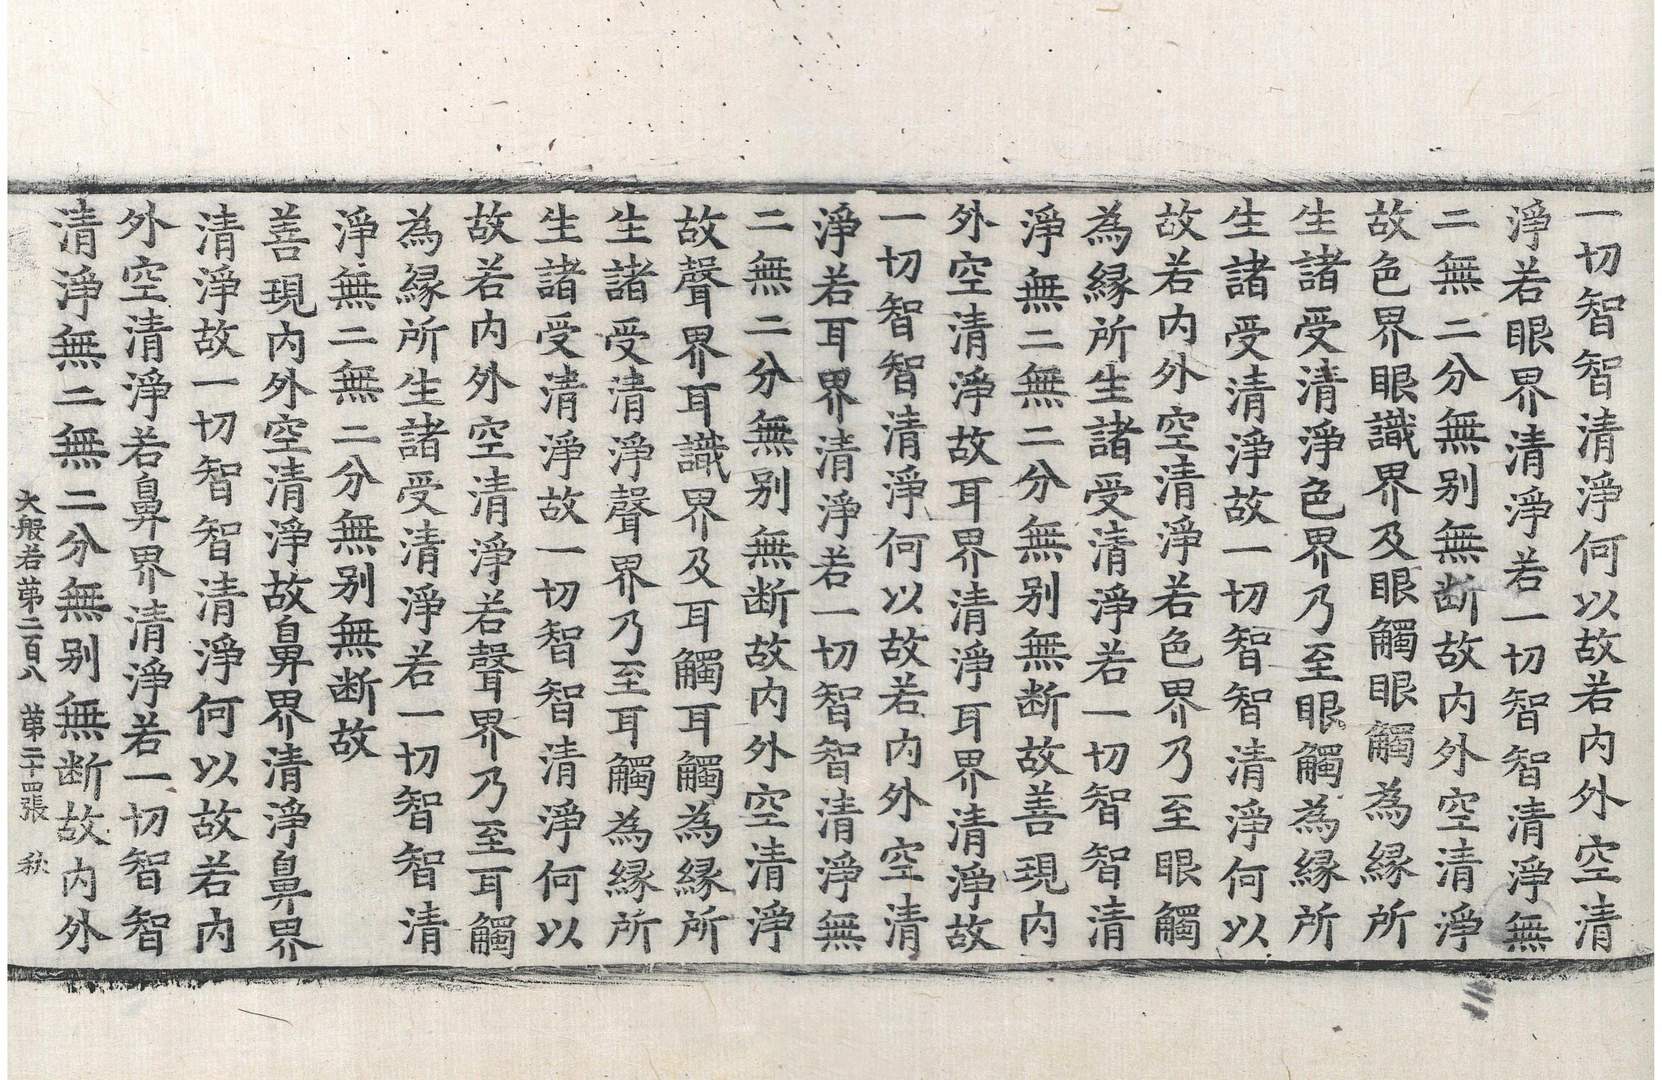 一切智智清淨何以故若内外空清
淨若眼界清淨若一切智智清淨無
二無二分無别無断故内外空清淨
故色界眼識界及眼觸眼觸為縁所
生諸受清淨色界乃至眼觸為縁所
生諸受清淨故一切智智清淨何以
故若内外空清淨若色界乃至眼觸
為縁所生諸受清淨若一切智智清
淨無二無二分無别無断故善現内
外空清淨故耳界清淨耳界清淨故
一切智智清淨何以故若内外空清
淨若耳界清淨若一切智智清淨無
二無二分無别無断故内外空清淨
故聲界耳識界及耳觸耳觸為縁所
生諸受清淨聲界乃至耳觸為縁所
生諸受清淨故一切智智清淨何以
故若内外空清淨若聲界乃至耳觸
為縁所生諸受清淨若一切智智清
淨無二無二分無别無断故
善現内外空清淨故鼻界清淨鼻界
清淨故一切智智清淨何以故若内
外空清淨若鼻界清淨若一切智智
清淨無二無二分無别無断故内外
大般若第二百八 第二十四張 秋